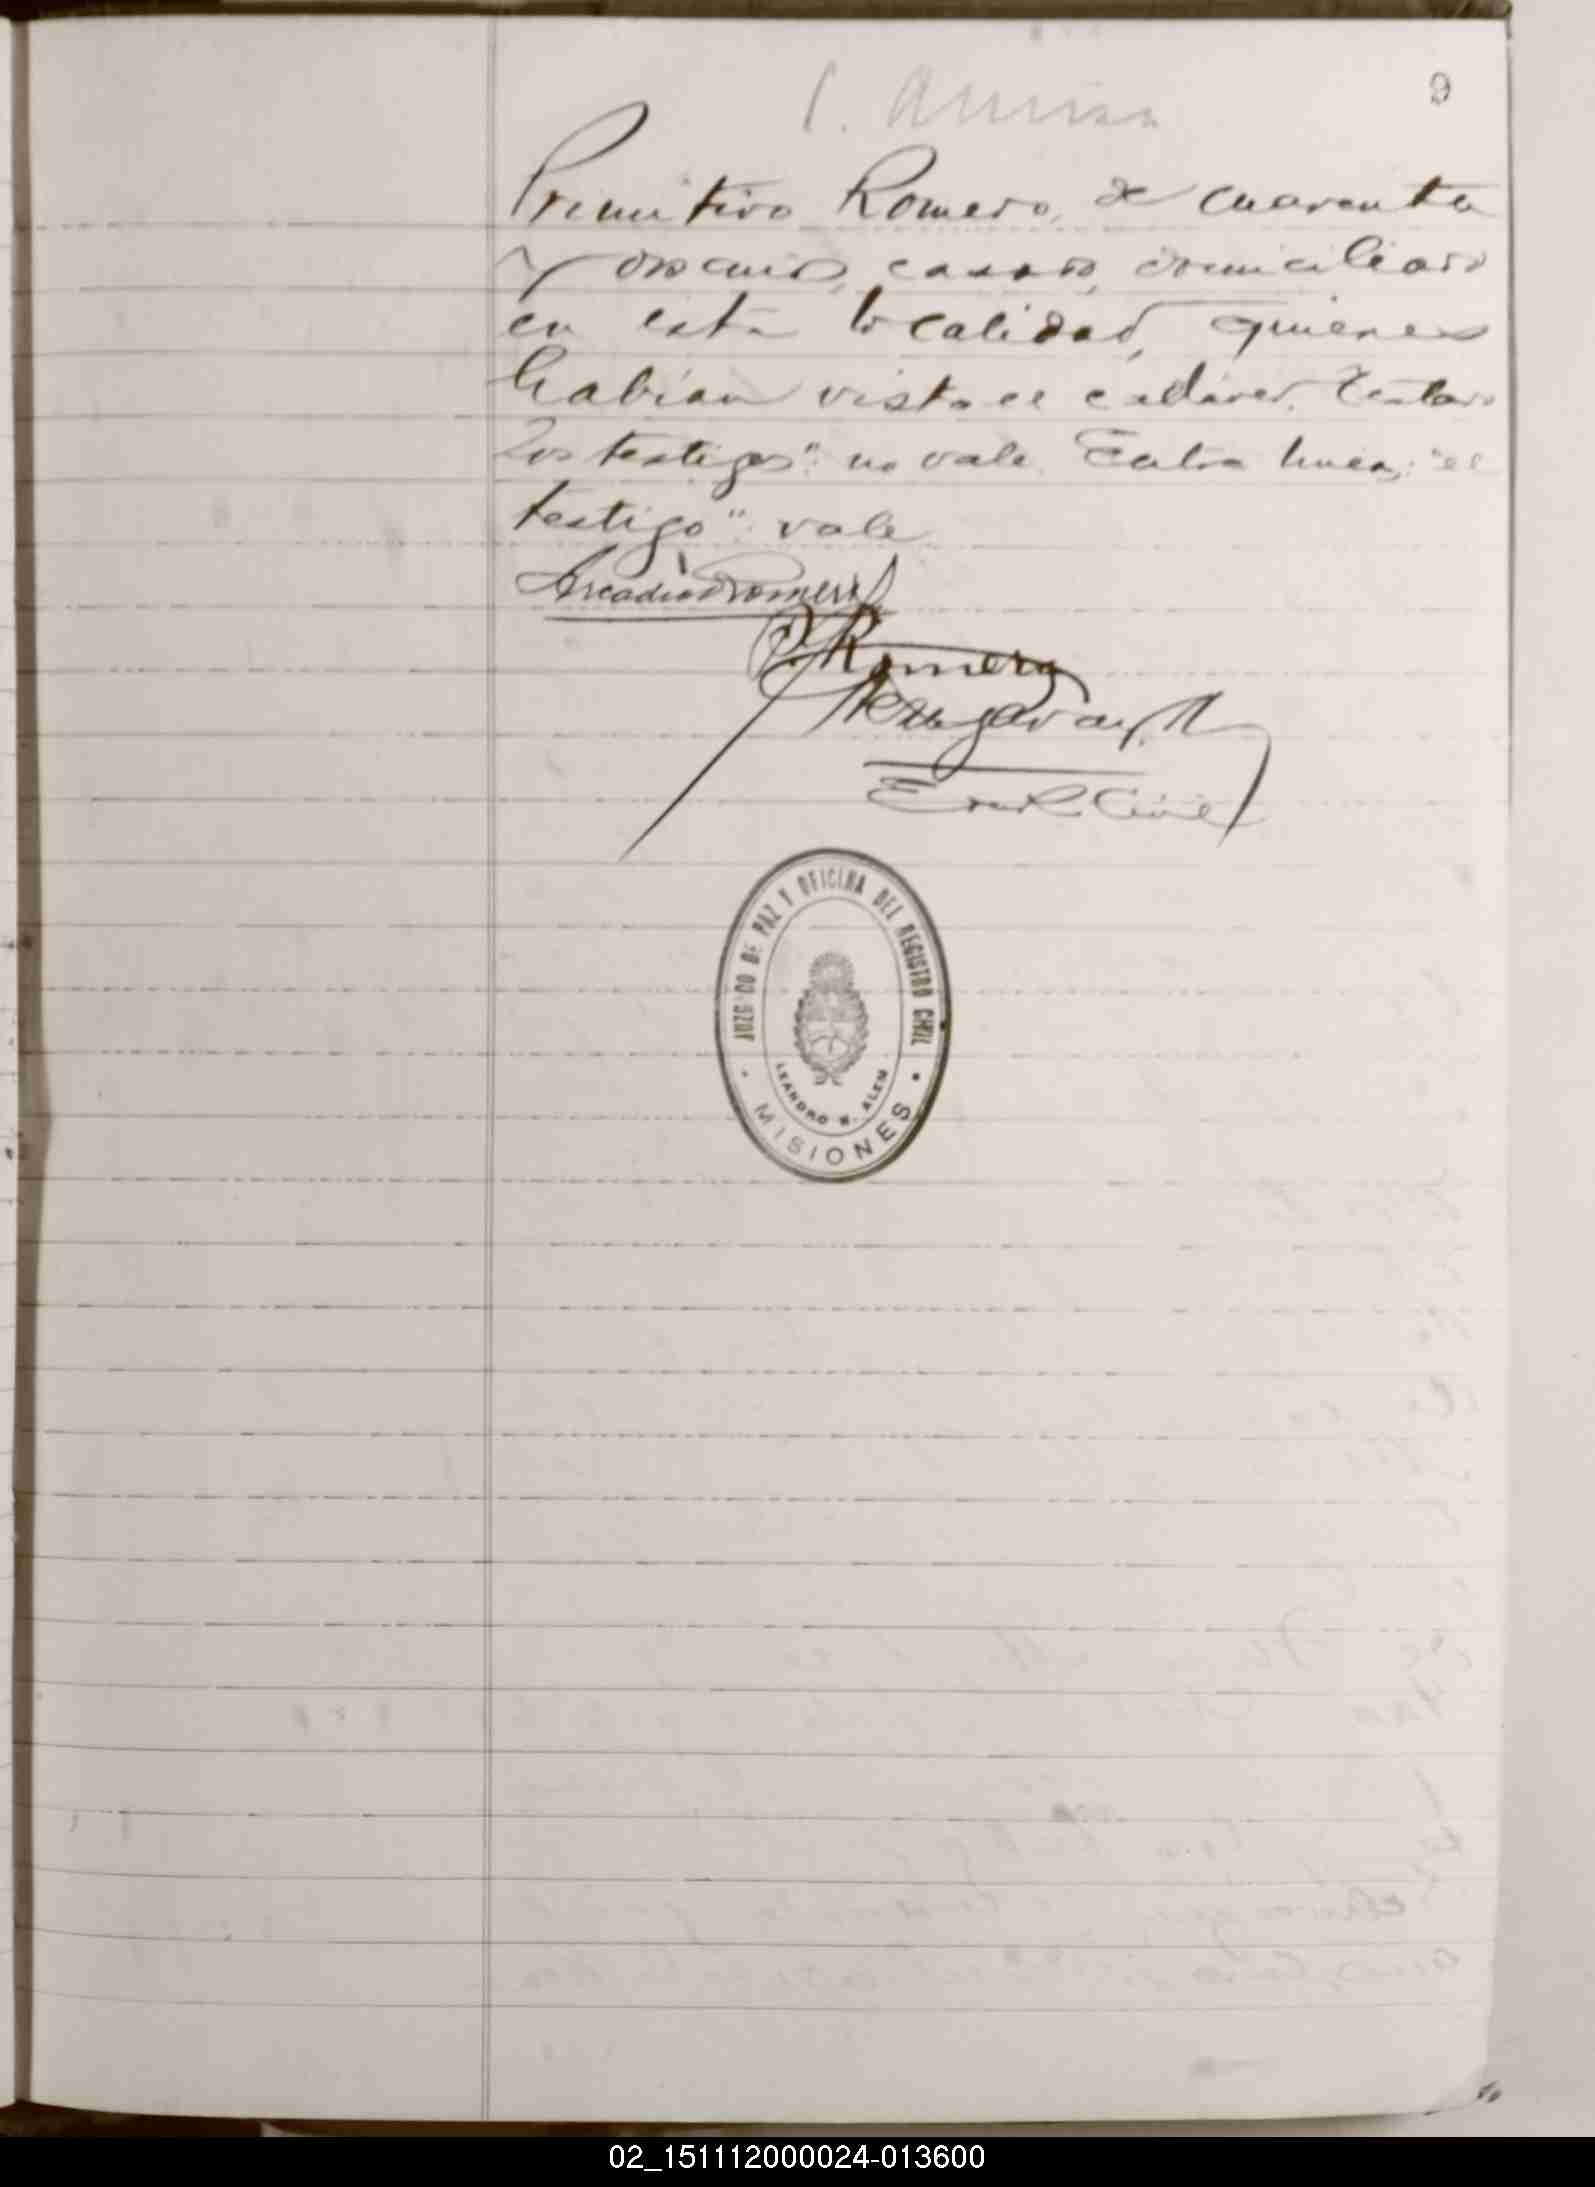 9
Primitivo Romero, de cuarenta
y dos años, casado, domiciliado
en esta localidad, quienes
habían visto el cadáver. Testado
"los testigos": no vale. Entre líneas: "el
testigo": vale
Arcadio Romero
P. Romero
Enc. R. Civil
JUZGADO DE PAZ Y OFICINA DEL REGISTRO CIVIL
LEANDRO N. ALEM
MISIONES
02_151112000024-013600